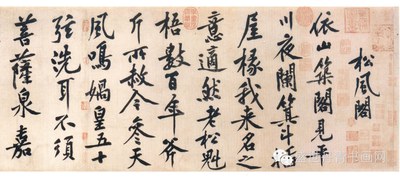 松風閣
依山築閣見平
川夜闌箕斗插
屋椽我來名之
意適然老松魁
梧數百年斧
斤所赦今參天
風鳴媧皇五十
弦洗耳不須
菩薩泉嘉
书画网